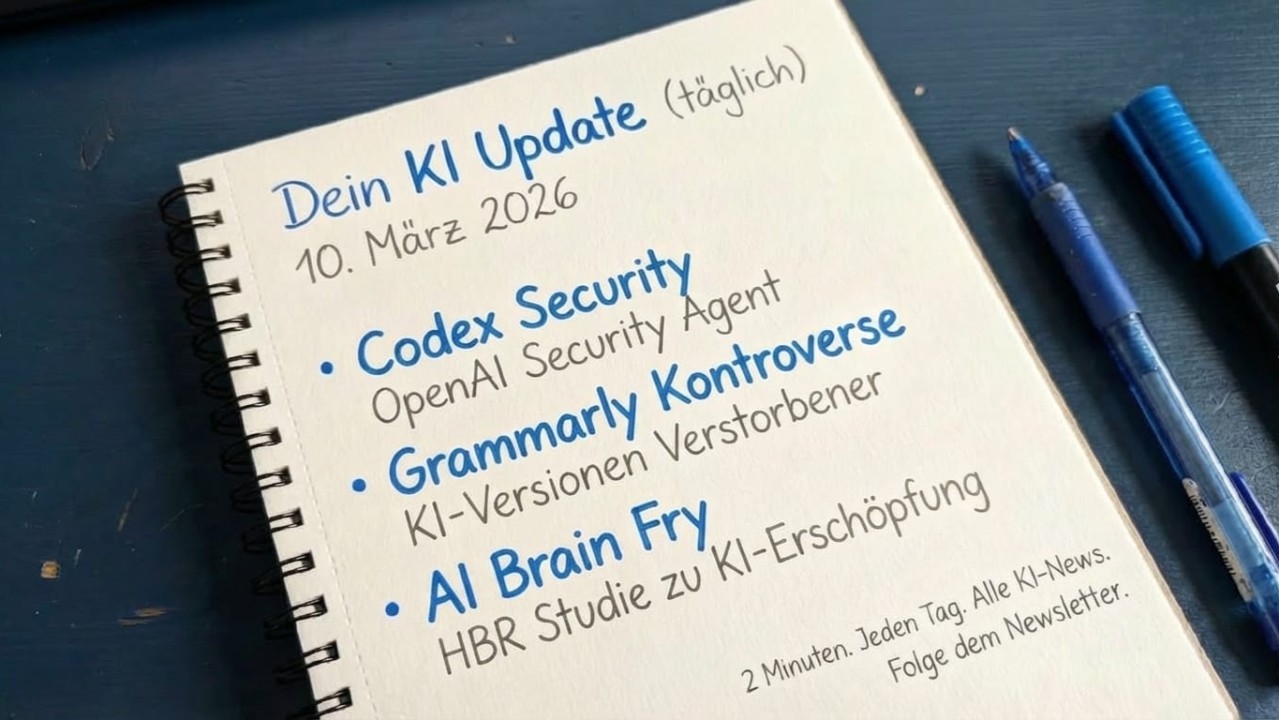 Dein KI Update (täglich)
10. März 2026
• Codex Security
OpenAI Security Agent
• Grammarly Kontroverse
KI-Versionen Verstorbener
• AI Brain Fry
HBR Studie zu KI-Erschöpfung
2 Minuten. Jeden Tag. Alle KI-News.
Folge dem Newsletter.